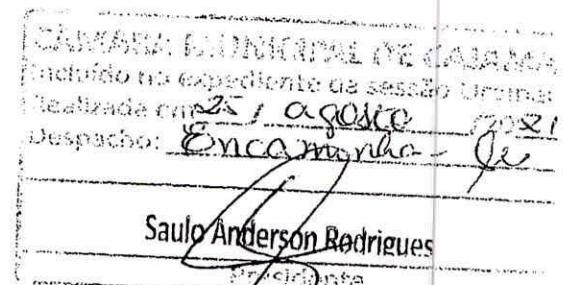 CÂMARA MUNICIPAL DE CAJAMA
Incluído no expediente da sessão Ordinár
Realizada em 25 / agosto /2021
Despacho: Encaminha-se
Saulo Anderson Rodrigues
Presidente